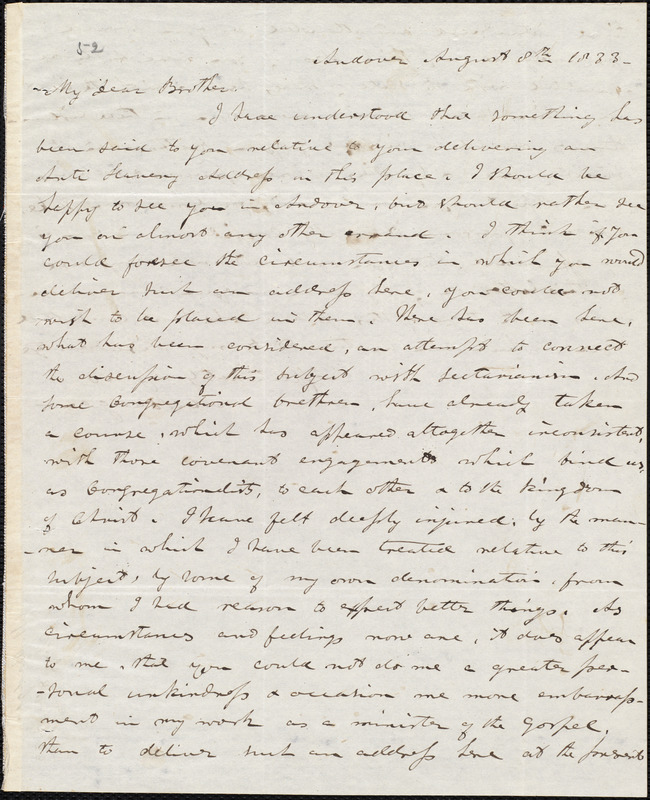 52
Andover August 8th 1833-
My dear Brother.
I have understood that something has
been said to you relative to your delivering an
Anti Slavery Address in this place. I should be
happy to see you in Andover, but should rather see
you on almost any other errand. I think if you
could forsee the circumstances in which you would
deliver such an address here, you could not
wish to be placed in them. There has been here,
what has been considered, an attempt to connect
the discussion of this subject with sectarianism. And
some Congregational brethren, have already taken
a course, which has appeared altogether inconsistent,
with those covenant engagements which bind us,
as Congregationalists, to each other & to the kingdom
of Christ. I have felt deeply injured, by the man-
-ner in which I have been treated relative to this
subject, by some of my own denomination, from
whom I had reason to expect better things. As
circumstances and feelings now are, it does appear
to me, that you could not do me a greater per-
-sonal unkindness & occasion me more embarrass-
ment in my work as a minister of the Gospel,
than to deliver such an address here at the present